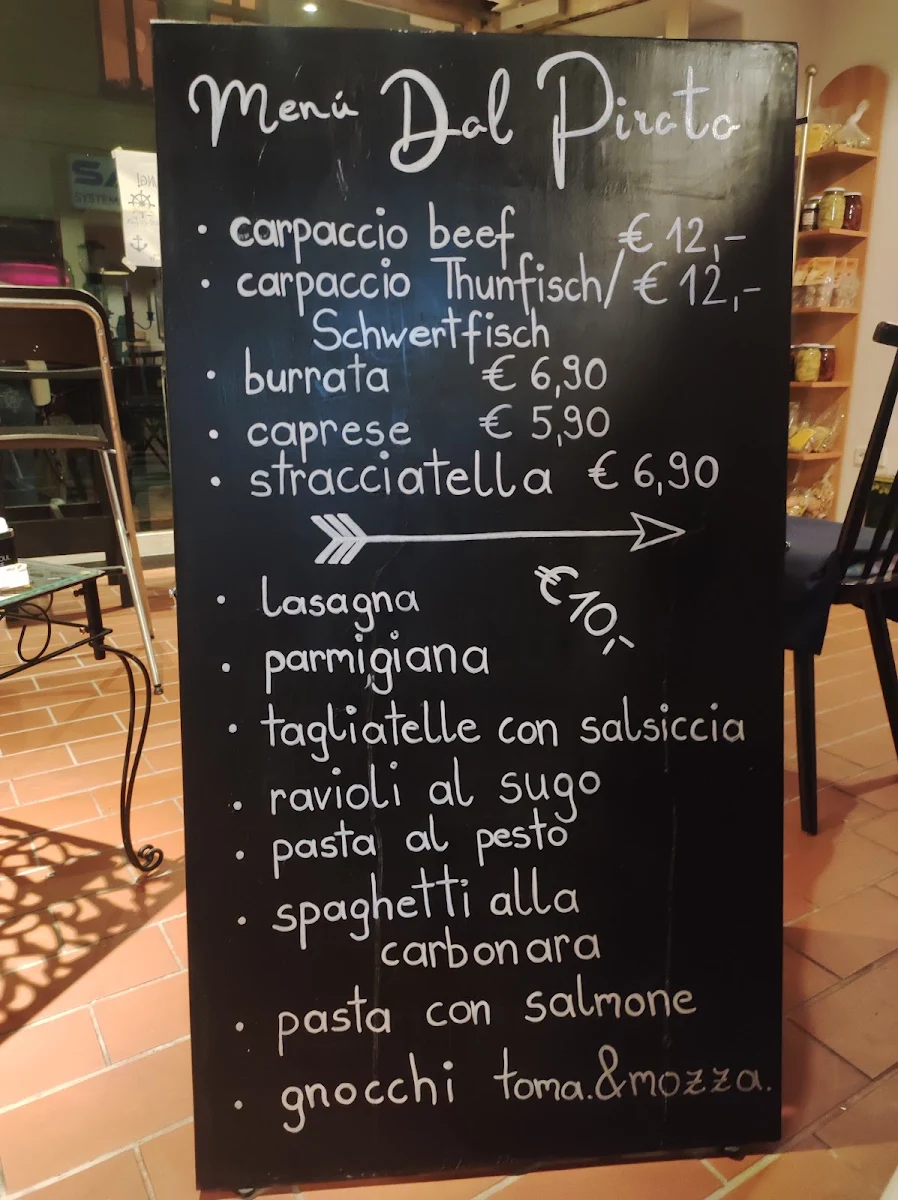 Menú Dal Pirata
• carpaccio beef € 12,-
• carpaccio Thunfisch/ € 12,-
Schwertfisch
• burrata € 6,90
• caprese € 5,90
• stracciatella € 6,90
€ 10,-
• lasagna
• parmigiana
• tagliatelle con salsiccia
• ravioli al sugo
• pasta al pesto
• spaghetti alla
carbonara
• pasta con salmone
• gnocchi toma.&mozza.
SYSTEM